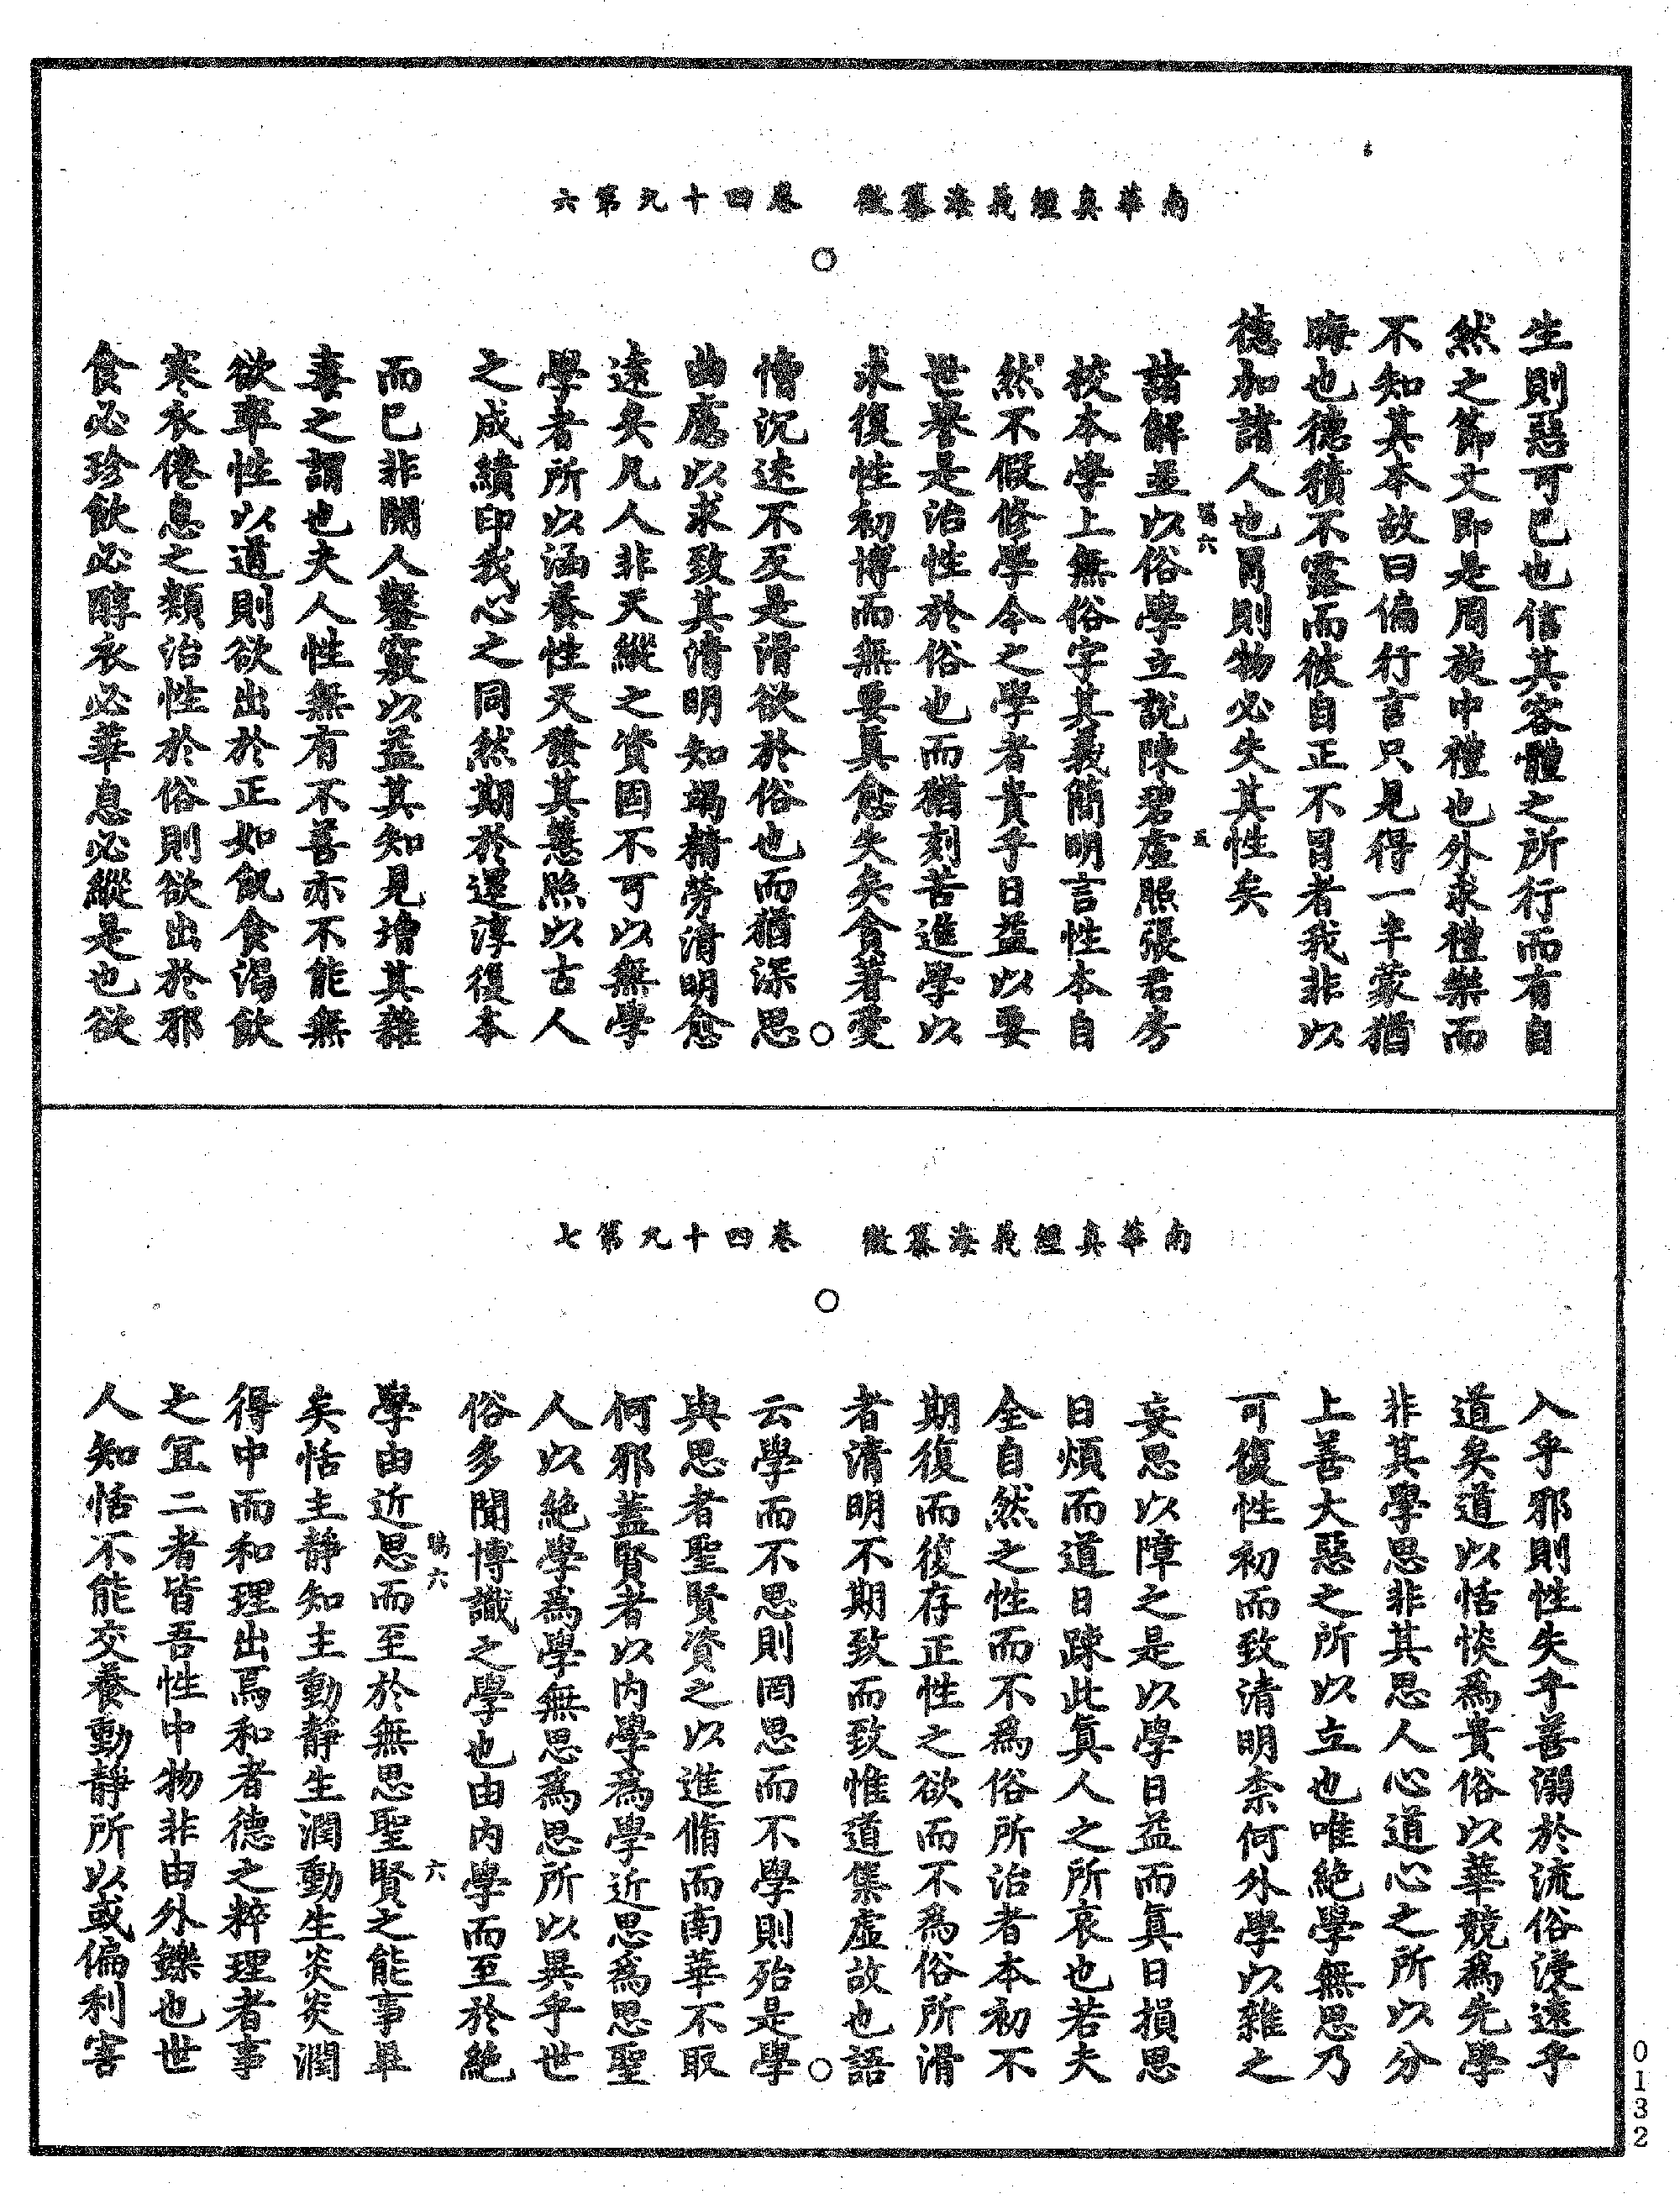 南華真經義海纂微　卷四十九第六
生則惡可巳也信其容體之所行而有自
然之節文即是周旋中禮也外求禮樂而
不知其本故曰偏行言只見得一半蒙猶
晦也德積不靈而彼自正不冒者我非以
德加諸人也冒則物必失其性矣
諸解並以俗學立說陳碧虛照張君房
校本學上無俗字其義簡明言性本自
然不假修學今之學者貴乎日益以要
世譽是治性於俗也而猶刻苦進學以
求復性初博而無要真愈失矣貪著愛
憎沉迷不反是滑欲於俗也而猶深思
曲慮以求致其清明知竭精勞清明愈
遠矣凡人非天縱之資固不可以無學
學者所以涵養性天發其慧照以古人
之成績印我心之同然期於還淳復本
而巳非開人鑿竅以益其知見增其雜
毒之謂也夫人性無有不善亦不能無
欲率性以道則欲出於正如飢食渴飲
寒衣倦息之類治性於俗則欲出於邪
食必珍飲必醇衣必華息必縱是也欲
南華真經義海纂微　卷四十九第七
入乎邪則性失乎善溺於流俗浸遠乎
道矣道以恬惔為貴俗以華競為先學
非其學思非其思人心道心之所以分
上善大惡之所以立也唯絕學無思乃
可復性初而致清明柰何外學以雜之
妄思以障之是以學日益而真日損思
日煩而道日踈此真人之所哀也若夫
全自然之性而不為俗所治者本初不
期復而復存正性之欲而不為俗所滑
者清明不期致而致惟道集虛故也語
云學而不思則罔思而不學則殆是學
與思者聖賢資之以進脩而南華不取
何邪蓋賢者以內學為學近思為思聖
人以絕學為學無思為思所以異乎世
俗多聞博識之學也由內學而至於絕
學由近思而至於無思聖賢之能事畢
矣恬主靜知主動靜生潤動生炎炎潤
得中而和理出焉和者德之粹理者事
之宜二者皆吾性中物非由外鑠也世
人知恬不能交養動靜所以或偏利害
0132